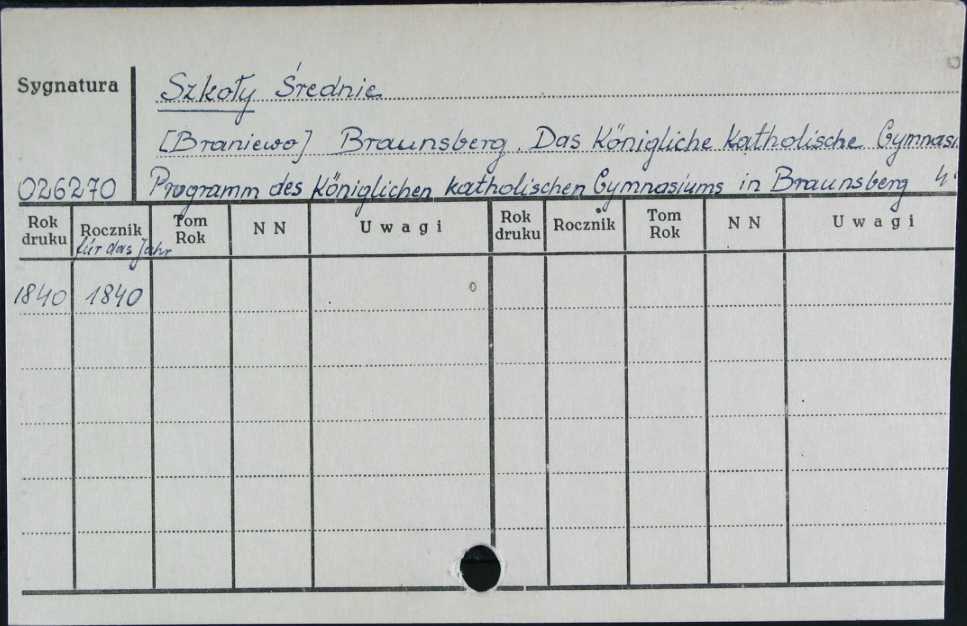 Sygnatura
Szkoły Średnie
[Braniewo] Braunsberg. Das Königliche katholische Gymnasi
026270
Programm des Königlichen katholischen Gymnasiums in Braunsberg 4°
Rok druku Rocznik Tom Rok NN Uwagi Rok druku Rocznik Tom Rok NN Uwagi
für das Jahr
1840 1840